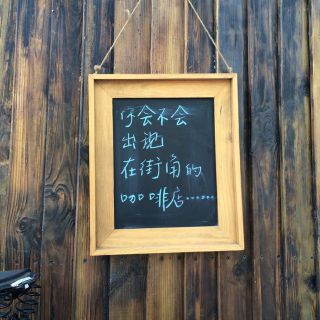 你会不会
出现
在街角的
咖啡店……